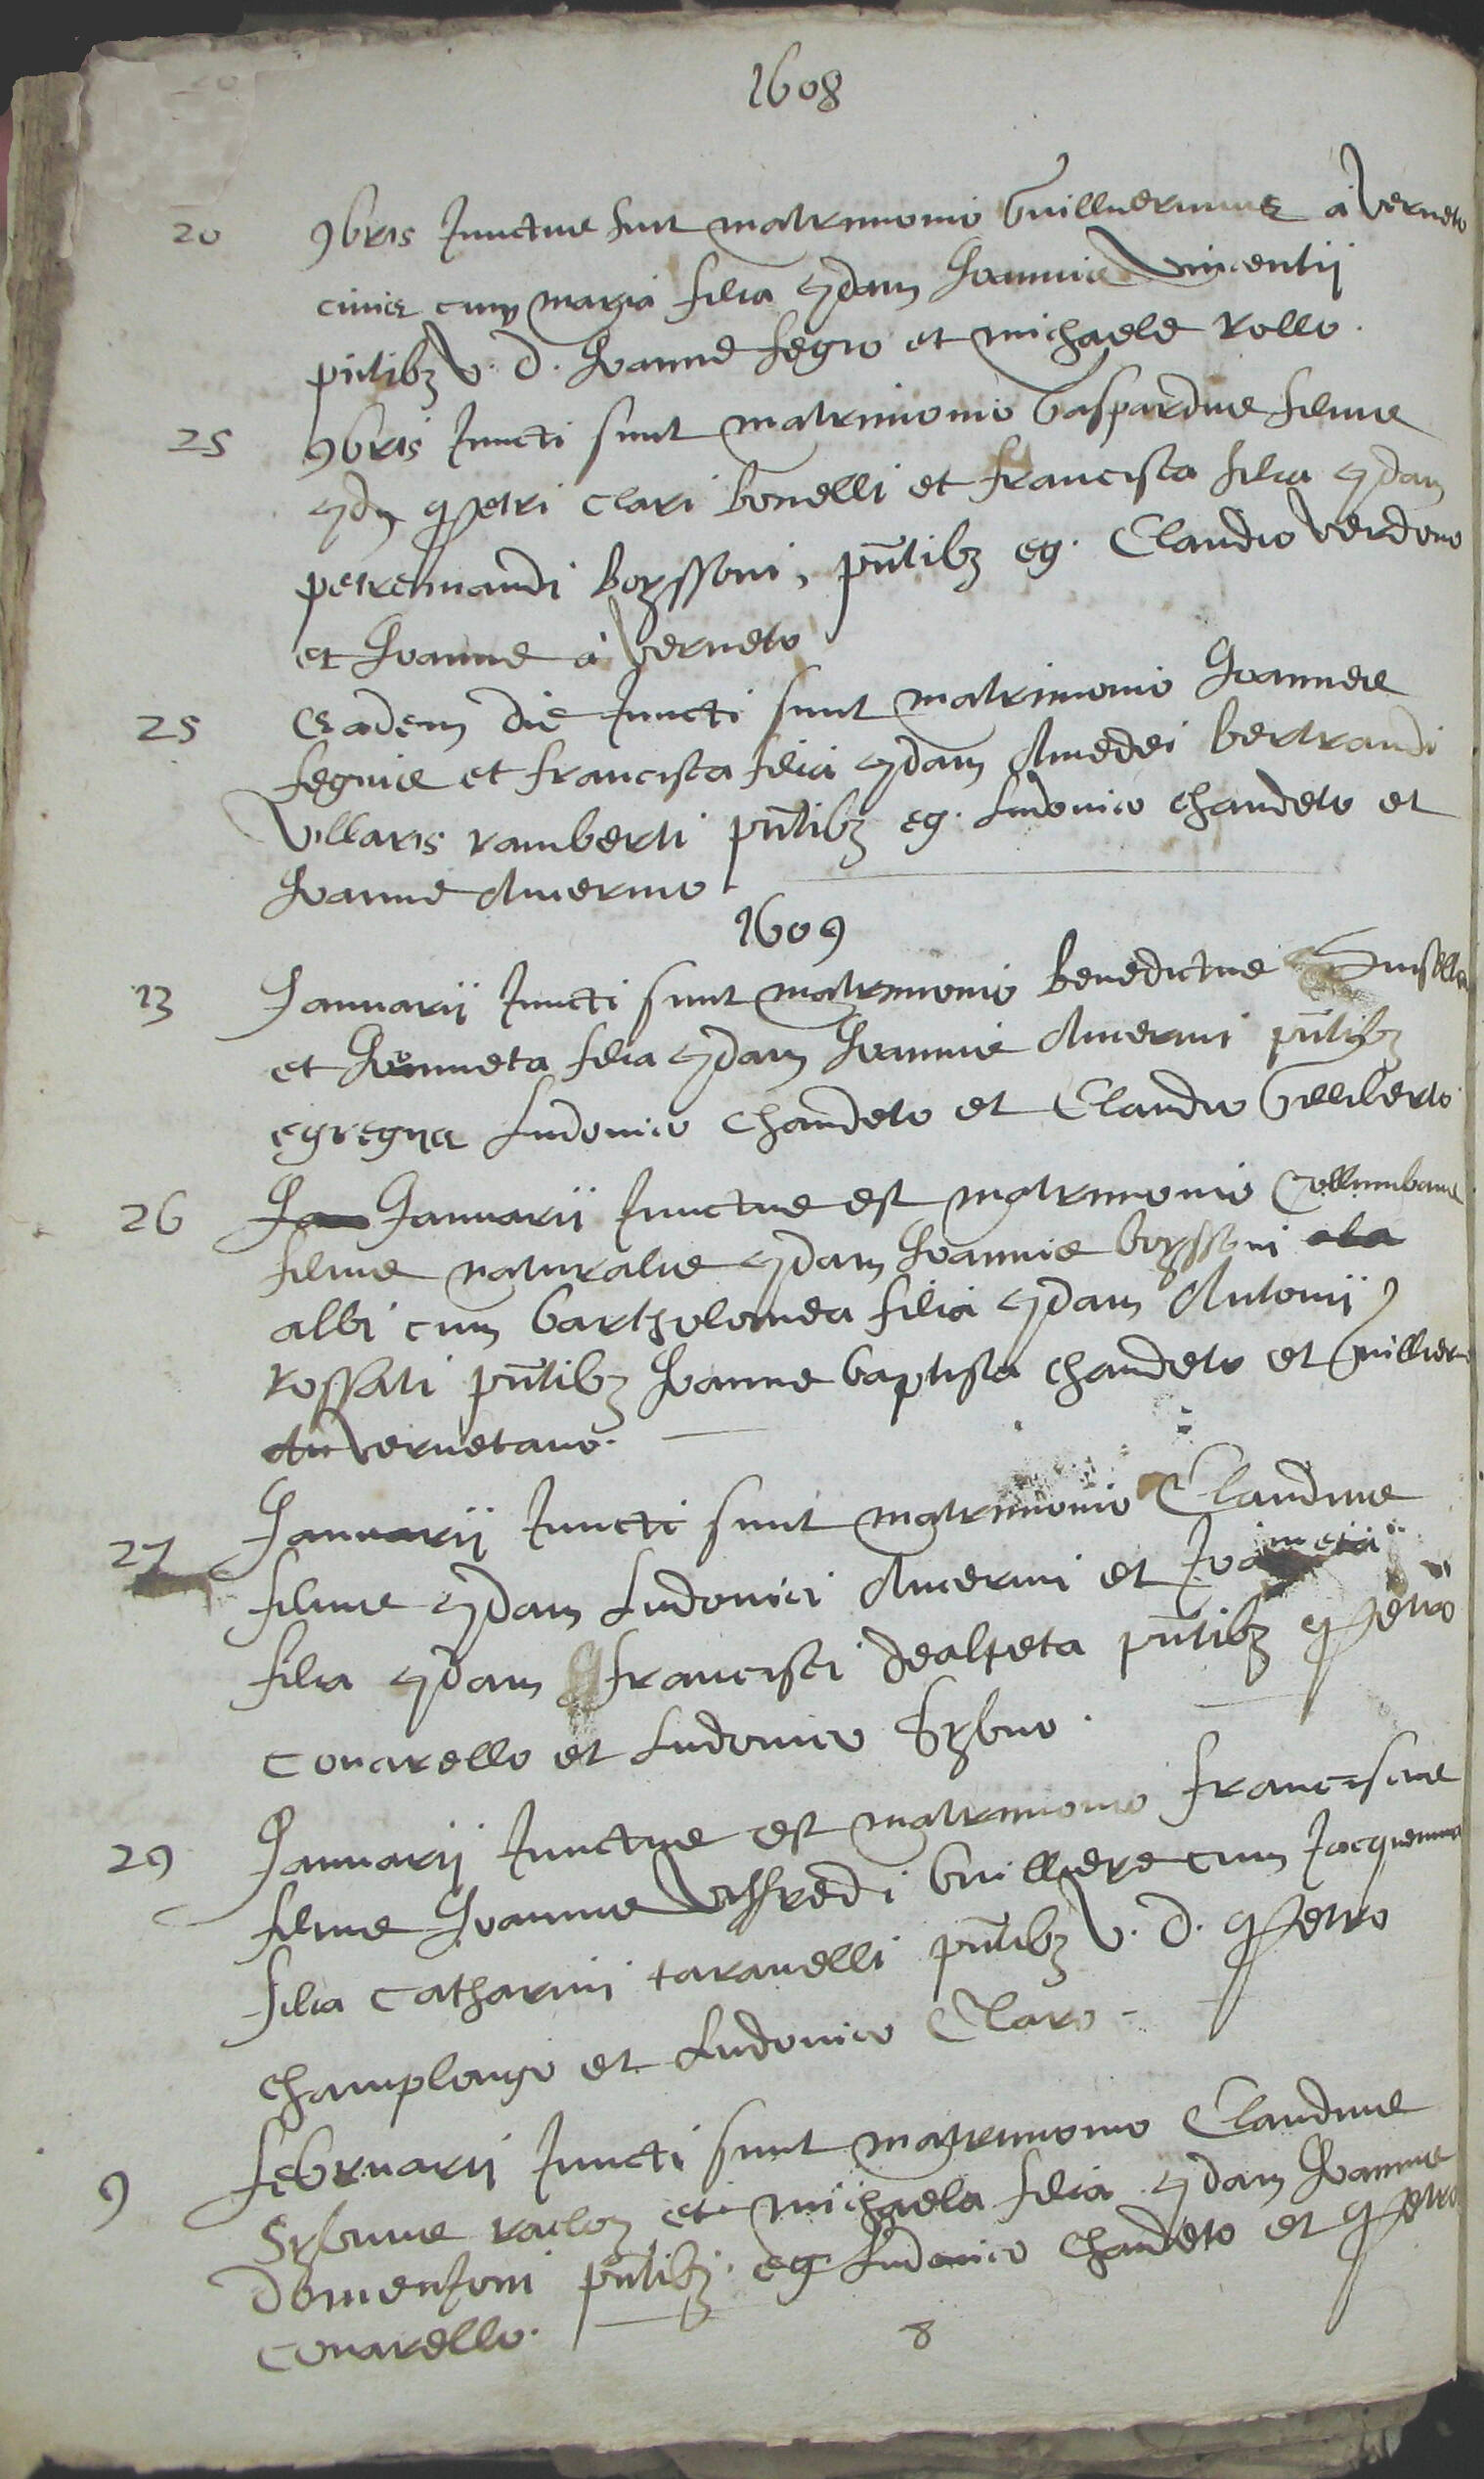 1608
20 9bris Junctus fuit matrimonio Guilliermus à Verneto
civis cum maria filia qdam Joannis Vincentii
pntibz V. D. Joanne Segio et michaele rollo.
25 9bris Juncti sunt matrimonio Gaspardus filius
qdm petri clari bonelli et francisca filia qdam
petremandi boyssoni, pntibz eg. Claudio Verdono
et Joanne à Verneto
25 Eadem die Juncti sunt matrimonio Joannes
Segius et francisca filia qdam Amedei bertrandi
Villaris ramberti pntibz eg. Ludovico chandeto et
Joanne Avermo
1609
13 Januarii Juncti sunt matrimonio benedictus
et Joenneta filia qdam Joannis Avermi pntibz
egregiis Ludovico chandeto et Claudio Gilliberto
26 Jan Januarii Junctus est matrimonio Collumbanus
filius naturalis qdam Joannis boyssoni ala
albi cum bartholomea filia qdam Antonii
rossati pntibz Joanne baptista chandeto et Guillier
du vernetano.
27 Januarii Juncti sunt matrimonio Claudius
filius qdam Ludovici Avermi et Joa meta
filia qdam francisci dealpeta pntibz petro
covarello et Ludovico Sybuo.
29 Januarii Junctus est matrimonio franciscus
filius Joannis Viffredi Guilliere cum Jacquemina
filia catharini taravelli pntibz V. D. petro
champlongo et Ludovico Claro -
9 februarii Juncti sunt matrimonio Claudius
Sybuus racloz et michaela filia qdam Joannis
Domenjoni pntibz. eg Ludovico chandeto et petro
covarello.
8